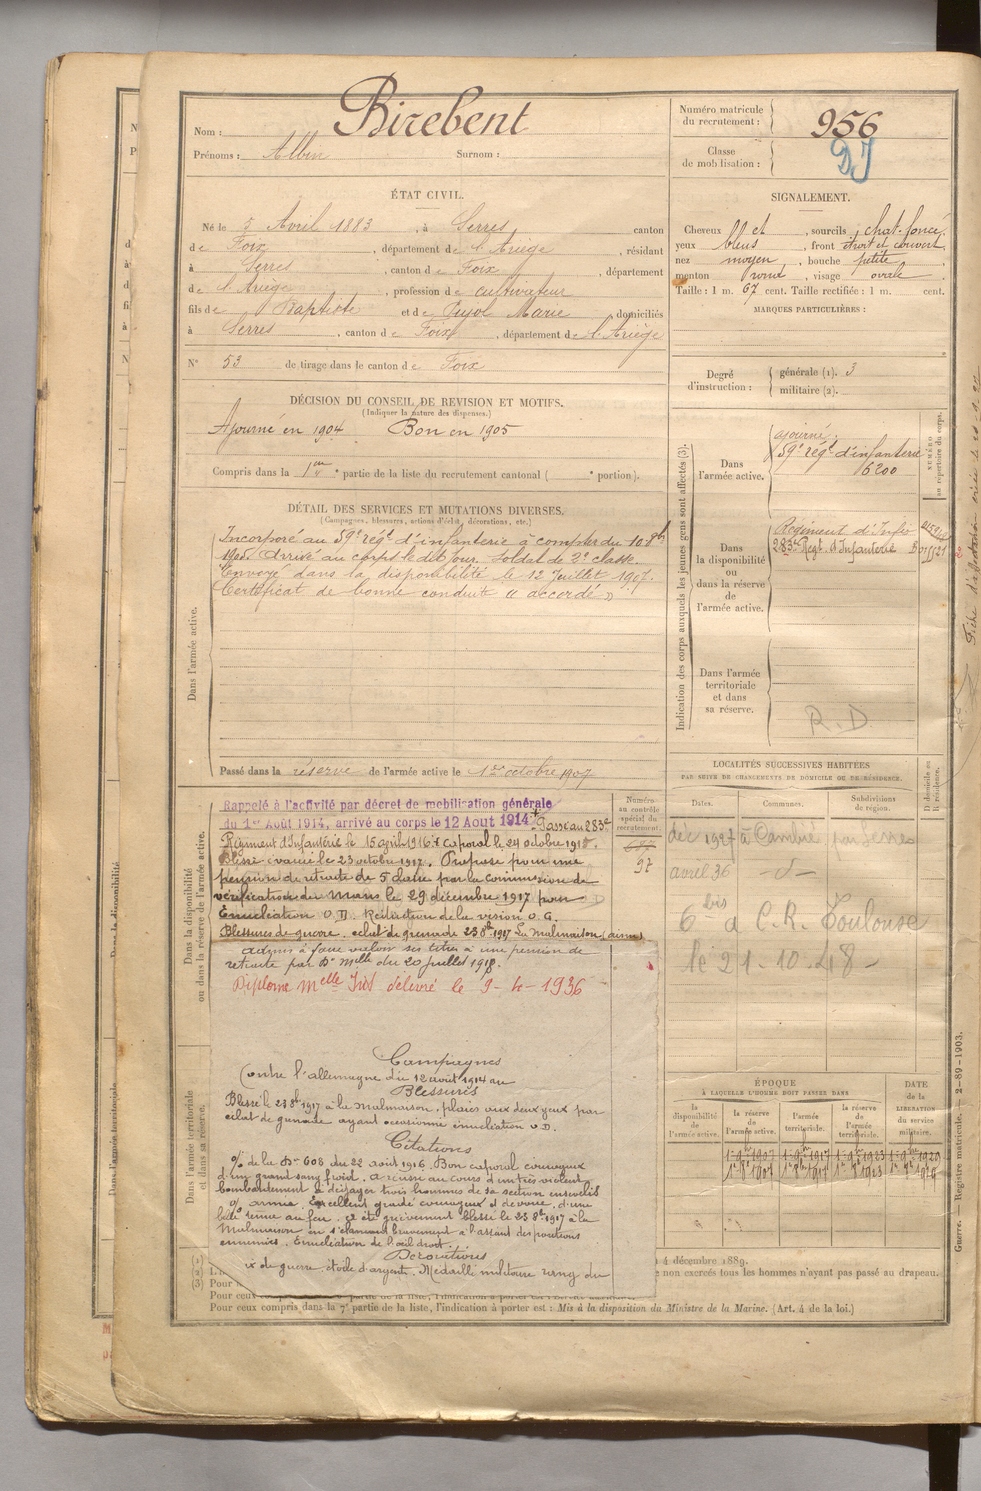 Nom : Birebent
Prénoms : Albin Surnom :
Numéro matricule du recrutement : 956
Classe de mobilisation :
ÉTAT CIVIL.
Né le 5 Avril 1883, à Serres canton
de Foix, département de l'Ariège, résidant
à Serres, canton de Foix, département
de l'Ariège, profession de cultivateur
fils de Baptiste et de Pujol Marie domiciliés
à Serres, canton de Foix, département de l'Ariège
N° 53 de tirage dans le canton de Foix
SIGNALEMENT.
Cheveux et, sourcils chat. foncé,
yeux bleus, front étroit et couvert,
nez moyen, bouche petite
menton rond, visage ovale
Taille : 1 m. 67 cent. Taille rectifiée : 1 m. cent.
MARQUES PARTICULIÈRES :
Degré d'instruction : générale (1). 3
militaire (2).
DÉCISION DU CONSEIL DE REVISION ET MOTIFS.
(Indiquer la nature des dispenses.)
Ajourné en 1904 Bon en 1905
Compris dans la 1re partie de la liste du recrutement cantonal ( e portion).
DÉTAIL DES SERVICES ET MUTATIONS DIVERSES.
(Campagnes, blessures, actions d'éclat, décorations, etc.)
Incorporé au 59e régt d'infanterie à compter du 10 8bre
Arrivé au corps le dit jour. Soldat de 2e classe.
Envoyé dans la disponibilité le 12 Juillet 1907.
Certificat de bonne conduite « accordé »
Dans l'armée active.
Passé dans la réserve de l'armée active le 1er octobre 1907
Indication des corps auxquels les jeunes gens sont affectés (3).
NUMÉRO au répertoire du corps.
Dans l'armée active.
ajourné.
59e régt d'infanterie
6200
Dans la disponibilité ou dans la réserve de l'armée active.
Régiment d'Infrie
283e Regt. d'Infanterie
Dans l'armée territoriale et dans sa réserve.
R.D
LOCALITÉS SUCCESSIVES HABITÉES
PAR SUITE DE CHANGEMENTS DE DOMICILE OU DE RÉSIDENCE.
Dates. Communes. Subdivisions de région. D domicile ou R résidence.
déc 1927 à Cambié par Serres
avril 36 -d-
6 bis à C.R. Toulouse
le 21.10.48-
Dans la disponibilité ou dans la réserve de l'armée active.
Numéro au contrôle spécial du recrutement.
97
Rappelé à l'activité par décret de mobilisation générale
du 1er Août 1914, arrivé au corps le 12 Aout 1914 Passé au 283e
Régiment d'Infanterie le 15 avril 1916 Caporal le 24 octobre 1916.
Blessé évacué le 23 octobre 1917. Proposé pour une
pension de retraite de 5 classe par la commission de
vérification du mans le 29 décembre 1917 pour
Enucléation O.D. Réduction de la vision O.G.
Blessures de guerre. eclat de grenade 23 8bre 1917 La Malmaison (aisne)
admis à faire valoir ses titres à une pension de
retraite par Don Mlle du 20 juillet 1918.
Diplome Melle délivré le 9-4-1936
Campagnes
Contre l'allemagne du 12 août 1914 au
Blessures
Blessé le 23 8bre 1917 à la Malmaison, plaies aux deux yeux par
eclat de grenade ayant occasionné énucléation O.D.
Citations
de la Don 608 du 22 août 1916. Bon caporal courageux
d'un grand sang froid, a réussi au cours d'un très violent
bombardement à dégager trois hommes de sa section ensevelis
armée. Excellent gradé courageux et dévoué, d'une
belle tenue au feu. a été grièvement blessé le 23 8bre 1917 à la
Malmaison en s'élançant bravement à l'assaut des positions
ennemies. Enucléation de l'oeil droit.
Décorations
de guerre étoile d'argent. Médaille militaire rang du
Dans l'armée territoriale et dans sa réserve.
ÉPOQUE
À LAQUELLE L'HOMME DOIT PASSER DANS
la disponibilité de l'armée active. la réserve de l'armée active. l'armée territoriale. la réserve de l'armée territoriale.
DATE de la LIBÉRATION du service militaire.
4 décembre 1889.
e non exercés tous les hommes n'ayant pas passé au drapeau.
(3) Pour
Pour ceux
Pour ceux compris dans la 7e partie de la liste, l'indication à porter est : Mis à la disposition du Ministre de la Marine. (Art. 4 de la loi.)
Guerre. — Registre matricule. — 2-89-1903.